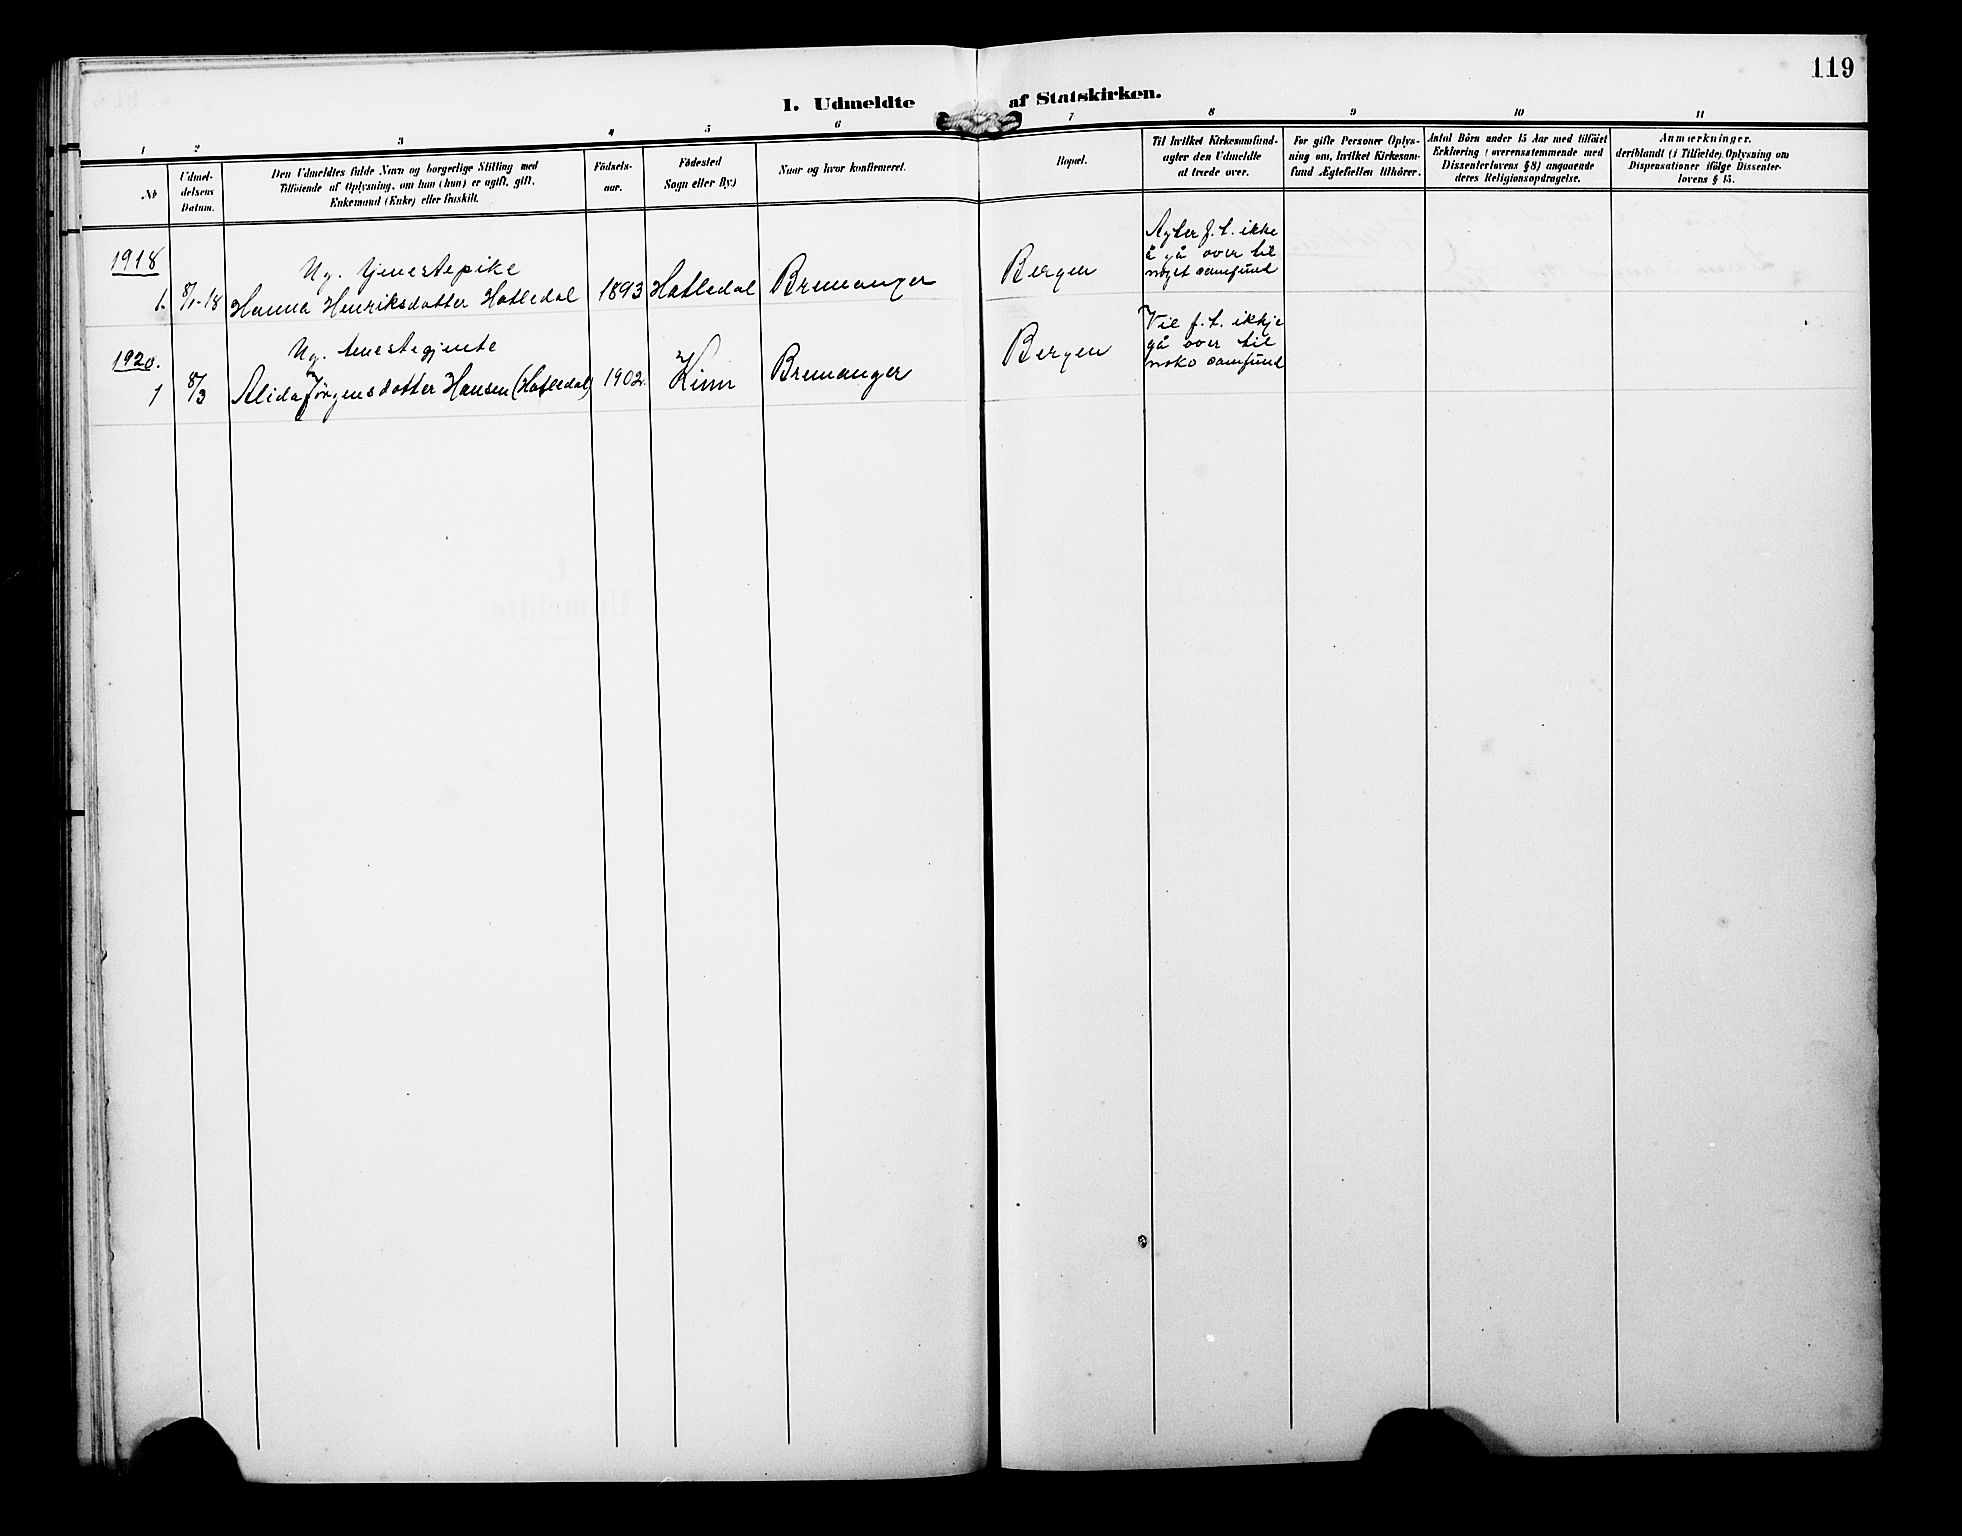 119
1. Udmeldte af Statskirken.
1 2 3 4 5 6 7 8 9 10 11
№
Udmel-
delsens
Datum.
Den Udmeldtes fulde Navn og borgerlige Stilling med
Tilføiende af Oplysning, om han (hun) er ugift, gift,
Enkemand (Enke) eller fraskilt.
Fødsels-
aar.
Fødested
Sogn eller By.)
Naar og hvor konfirmeret.
Bopæl.
Til hvilket Kirkesamfund
agter den Udmeldte
at træde over.
For gifte Personer Oplys-
ning om, hvilket Kirkesam-
fund Ægtefællen tilhører.
Antal Börn under 15 Aar med tilføiet
Erklæring (overensstemmende med
Dissenterlovens § 8) angaaende
deres Religionsopdragelse.
Anmærkninger,
deriblandt (i Tilfælde) Oplysning om
Dispensationer ifölge Dissenter-
lovens § 15.
1918
1. 8/1-18
Ug. tjenestepike
Hanna Henriksdotter Hatledal
1893 Hatledal Bremanger Bergen
Agter f. t. ikke
å gå over til
noget samfund
1920.
1 8/3
Ug. tenestegjente
Alida Jørgensdotter Hansen (Hatledal)
1902. Kinn Bremanger Bergen
Vil f. t. ikkje
gå over til
noko samfund